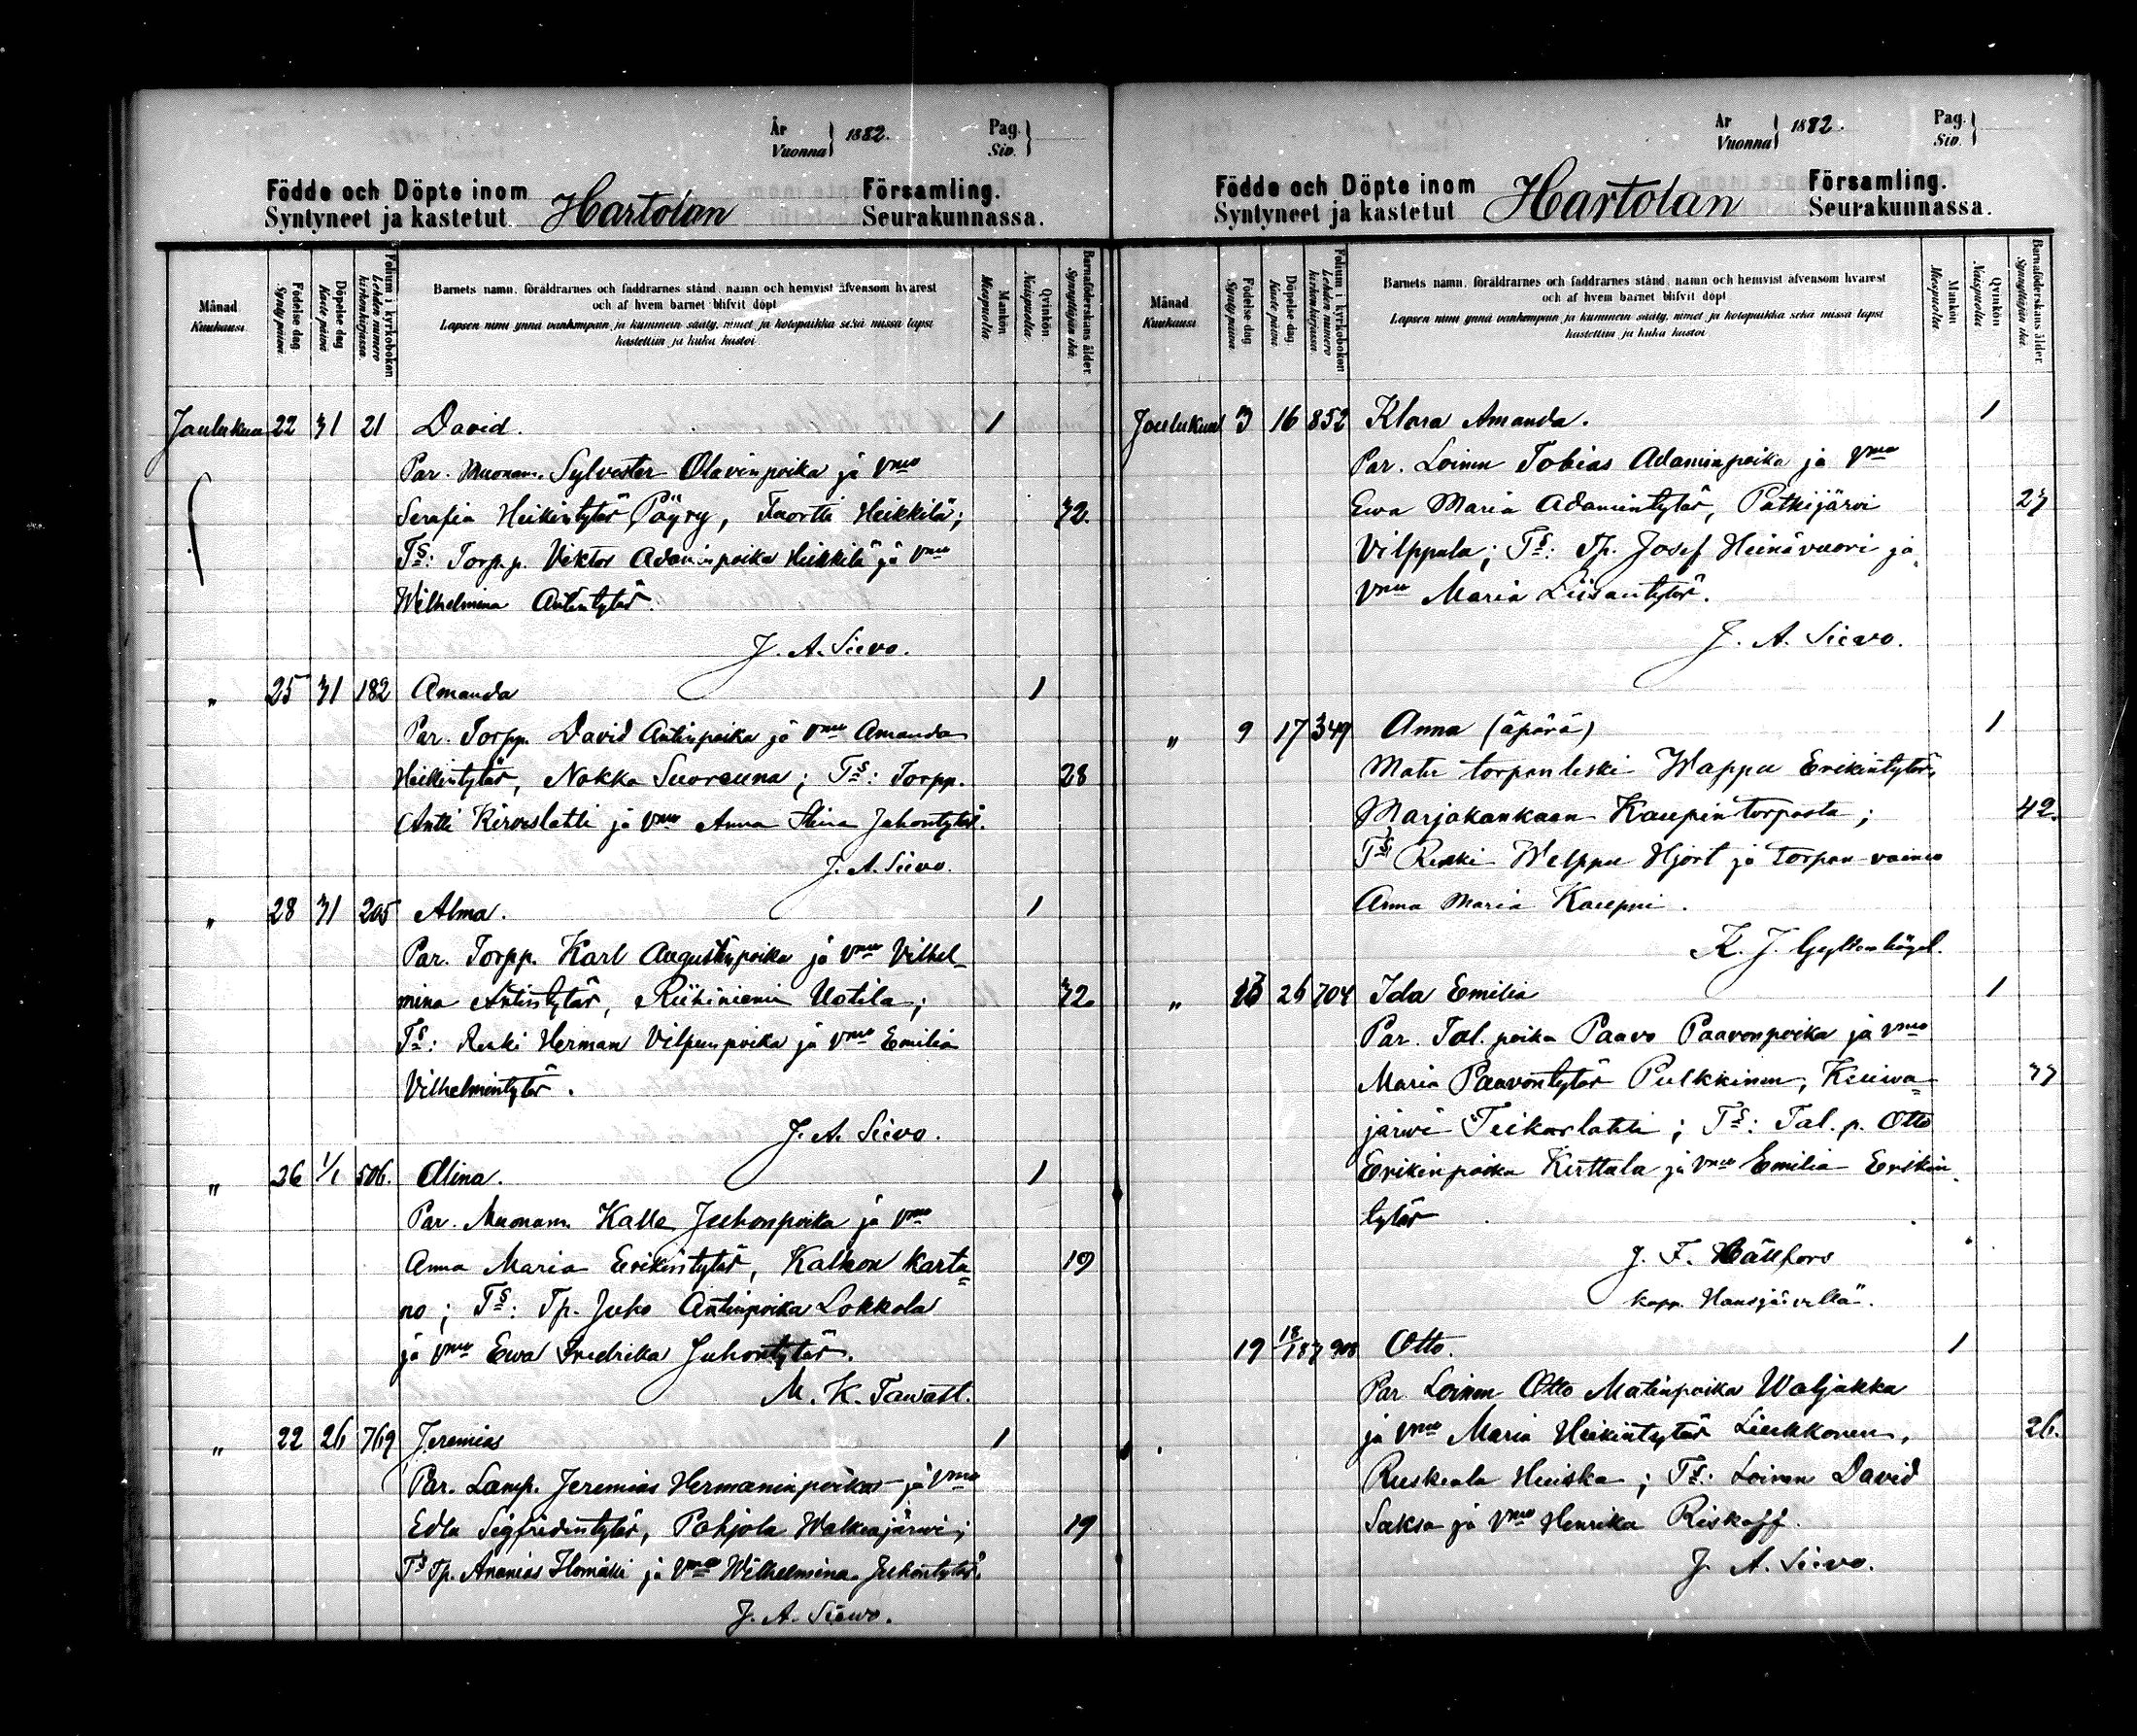 År
Vuonna } 1882.
Pag.
Siv. }
Födde och Döpte inom Hartolan Församling.
Syntyneet ja kastetut Seurakunnassa.
Månad
Kuukausi
Födelse dag
Synty päivä.
Döpelse dag
Kaste päivä
Folium i kyrkoboken
Lehden numero kirkonkirjassa.
Barnets namn, föräldrarnes och faddrarnes stånd, namn och hemvist äfvensom hvarest
och af hvem barnet blifvit döpt
Lapsen nimi ynnä vanhempain ja kummein sääty, nimet ja kotopaikka sekä missä lapsi
kastettiin ja kuka kastoi.
Mankön
Miespuolia.
Qvinkön.
Naispuolia.
Barnaföderskans ålder.
Synnyttäjän ikä.
Joulukuu 22 31 21 David. 1
Par. Muonam. Sylvester Olavinpoika ja vmo
Serafia Heikintytär Pöyry, Fuortti Heikkilä; 32.
Ts: Torp.p. Viktor Adaminpoika Heikkilä ja vmo
Wilhelmina Antintytär.
J. A. Siewo.
" 25 31 182 Amanda 1
Par. Torpp. David Antinpoika ja vmo Amanda
Heikkintytär, Nokka Suorauna; Ts: Torpp. 28
Antti Kirveslahti ja vmo Anna Stina Juhontytär.
J. A. Siewo.
" 28 31 205 Alma. 1
Par. Torpp. Karl Augustinpoika ja vmo Vilhel-
mina Antintytär, Riihiniemi Uotila; 32.
Ts: Renki Herman Vilpunpoika ja vmo Emilia
Vilhelmintytär.
J. A. Siewo.
" 26 1/1 506. Alina. 1
Par. Muonam. Kalle Juhonpoika ja vmo
Anna Maria Eerikintytär, Kalhon karta= 19
no; Ts: Tp. Juho Antinpoika Lokkola
ja vmo Ewa Fredrika Juhontytär.
M. K. Tawast.
" 22 26 769 Jeremias 1
Par. Lamp. Jeremias Hermaninpoika ja vmo
Edla Segfridintytär, Pohjola Walkeajärwi; 19
Ts Tp. Ananias Ilomäki ja vmo Wilhelmina Juhontytär.
J. A. Siewo.
År
Vuonna } 1882.
Pag.
Siv. }
Födde och Döpte inom Hartolan Församling.
Syntyneet ja kastetut Seurakunnassa.
Månad
Kuukausi
Födelse dag
Synty päivä.
Döpelse dag.
Kaste päivä
Folium i kyrkoboken
Lehden numero kirkonkirjassa.
Barnets namn, föräldrarnes och faddrarnes stånd, namn och hemvist äfvensom hvarest
och af hvem barnet blifvit döpt
Lapsen nimi ynnä vanhempain ja kummein sääty, nimet ja kotopaikka sekä missä lapsi
kastettiin ja kuka kastoi
Mankön
Miespuolia.
Qvinkön
Naispuolia
Barnaföderskans ålder.
Synnyttäjän ikä.
Joulukuu 3 16 852 Klara Amanda. 1
Par. Loinen Tobias Adaminpoika ja vmo
Ewa Maria Adamintytär, Pätkijärvi 23
Vilppula; Ts: Tp. Josef Heinävuori ja
vmo Maria Liisantytär.
J. A. Siewo.
" 9 17 349 Anna (äpärä) 1
Mater torpanleski Wappu Erikintytär,
Marjakankaan Kaupin torpasta; 42.
Ts Renki Welppu Hjort ja torpan-vaimo
Anna Maria Kauppi.
K. J. Gyltenbögel.
" 13 26 704 Ida Emilia 1
Par. Tal. poika Paavo Paavonpoika ja vmo
Maria Paavontytär Pulkkinen, Kuiwa= 33
järwi Teikarlahti; Ts: Tal. p. Otto
Erikinpoika Kirttula ja vmo Emilia Eerikin
tytär
J. F. Hällfors
kapp. Hansjärvellä.
19 18/1 83 908 Otto. 1
Par. Loinen Otto Matinpoika Waljakka
ja vmo Maria Heikintytär Liukkonen, 26.
Ruskeala Huiska; Ts: Loinen David
Saksa ja vmo Henrika Riskaff.
J. A. Siewo.